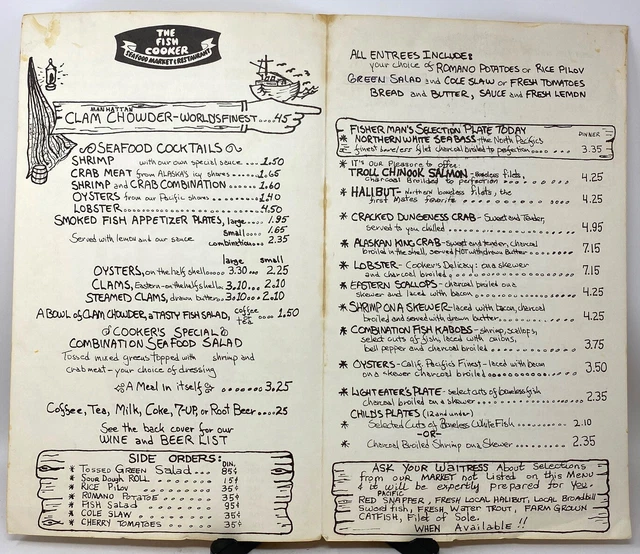 THE
FISH
COOKER
SEAFOOD MARKET & RESTAURANT
MANHATTAN
CLAM CHOWDER-WORLDS FINEST....45
SEAFOOD COCKTAILS
SHRIMP with our own special sauce.... 1.50
CRAB MEAT from ALASKA'S icy shores.... 1.65
SHRIMP and CRAB COMBINATION.... 1.60
OYSTERS from our Pacific shores.... 1.40
LOBSTER.... 4.50
SMOKED FISH APPETIZER PLATES, large.... 1.95
small.... 1.65
Served with lemon and our sauce combination... 2.35
large small
OYSTERS, on the half shell.... 3.30... 2.25
CLAMS, Eastern-on the half shell.. 3.10... 2.10
STEAMED CLAMS, drawn butter... 3.10... 2.10
A BOWL of CLAM CHOWDER, a TASTY FISH SALAD, coffee or tea.... 1.50
COOKER'S SPECIAL
COMBINATION SEAFOOD SALAD
Tossed mixed greens topped with shrimp and
crab meat - your choice of dressing
A Meal in itself........ 3.25
Coffee, Tea, Milk, Coke, 7-UP, or Root Beer.....25
See the back cover for our
WINE and BEER LIST
SIDE ORDERS: DIN.
* TOSSED GREEN Salad... 85¢
* Sour Dough ROLL........ 15¢
* RICE PILOV........ 35¢
* ROMANO POTATOE...... 35¢
* FISH SALAD........ 95¢
* COLE SLAW........ 35¢
* CHERRY TOMATOES.... 35¢
ALL ENTREES INCLUDE:
your choice of ROMANO POTATOES or RICE PILOV
GREEN SALAD and COLE SLAW or FRESH TOMATOES
BREAD and BUTTER, SAUCE and FRESH LEMON
FISHERMAN'S SELECTION PLATE TODAY
DINNER
* NORTHERN WHITE SEA BASS-the North Pacific's
finest boneless filet charcoal broiled to perfection.... 3.35
* IT'S OUR Pleasure to offer:
TROLL CHINOOK SALMON-Boneless filets,
charcoal Broiled to perfection.... 4.25
* HALIBUT-Northern boneless filets, the
first Mates favorite.... 4.25
* CRACKED DUNGENESS CRAB-Sweet and Tender,
served to you chilled.... 4.95
* ALASKAN KING CRAB-sweet and tender, charcoal
broiled in the shell, served Hot w/drawn Butter.... 7.15
* LOBSTER-Cooker's Delicacy: on a skewer
and charcoal broiled.... 7.15
* EASTERN SCALLOPS-charcoal broiled on a
skewer and laced with bacon.... 4.25
* SHRIMP ON A SKEWER-laced with bacon, charcoal
broiled and served with drawn butter.... 4.25
* COMBINATION FISH KABOBS-shrimp, scallops,
select cuts of fish, laced with onions,
bell pepper and charcoal broiled.... 3.75
* OYSTERS-Calif. Pacific's Finest-laced with bacon
on a skewer charcoal broiled.... 3.50
* LIGHT EATER'S PLATE-select cuts of boneless fish
charcoal broiled on a skewer.... 2.35
CHILD'S PLATES (12 and under)
* Selected Cuts of Boneless White Fish.... 2.10
-OR-
* Charcoal Broiled Shrimp on a Skewer.... 2.35
ASK YOUR WAITRESS About Selections
from OUR MARKET not Listed on this MENU
& it will be expertly prepared for You.
PACIFIC
RED SNAPPER, FRESH LOCAL HALIBUT, LOCAL Broadbill
Swordfish, FRESH WATER TROUT, FARM GROWN
CATFISH, Filet of Sole.
WHEN Available!!